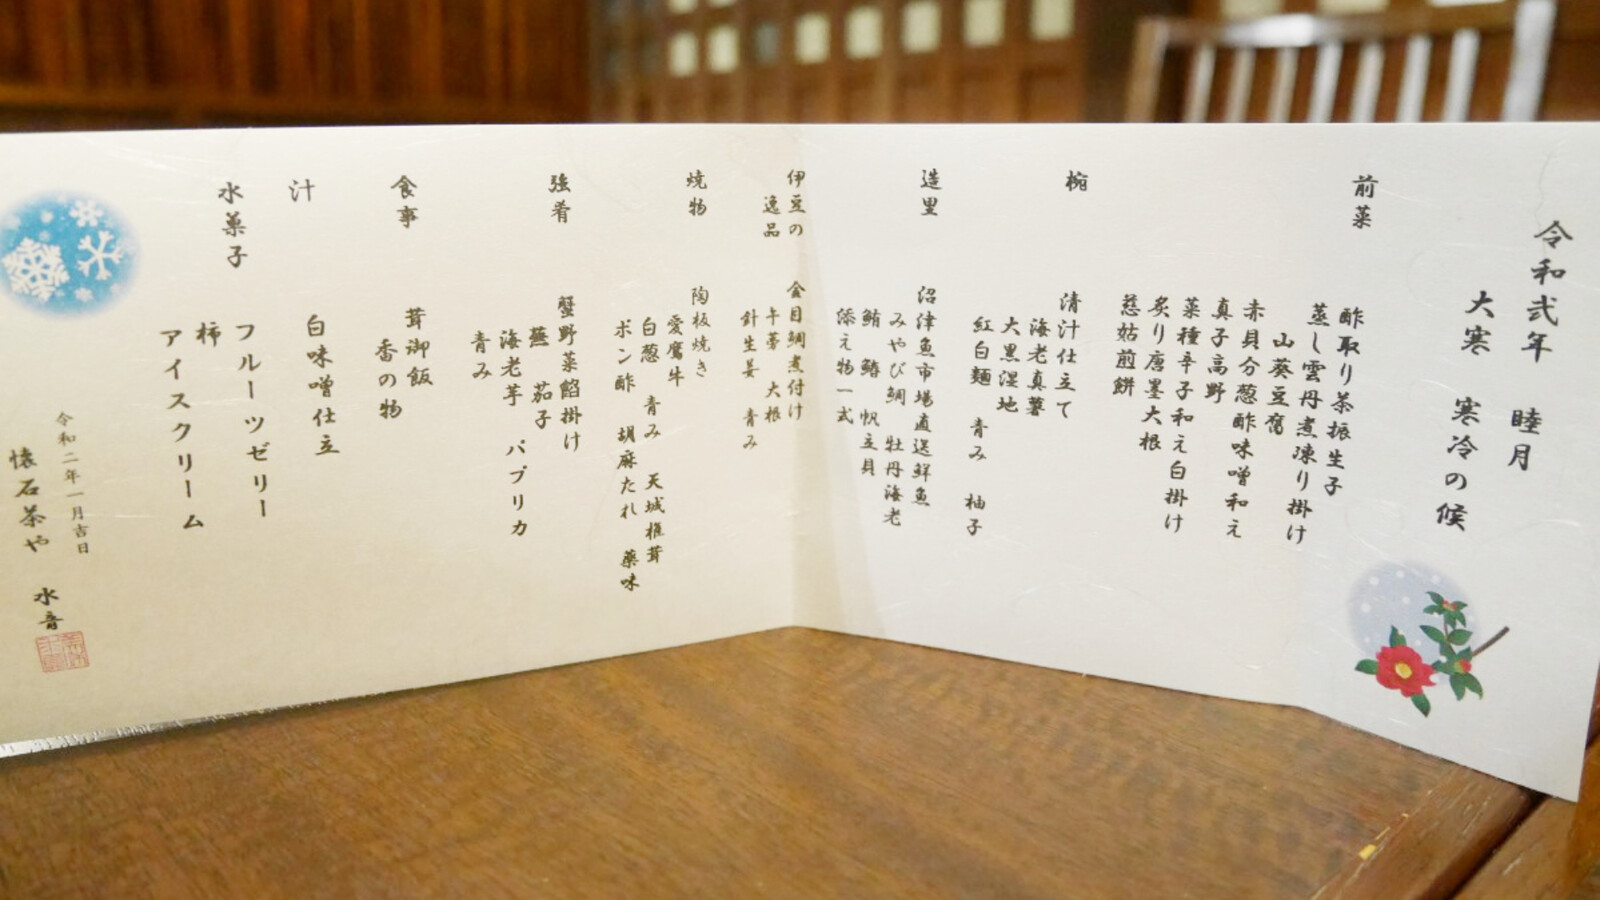 令和弐年 睦月
大寒 寒冷の候
前菜
酢取り茶振生子
蒸し雲丹煮凍り掛け
山葵豆腐
赤貝分葱酢味噌和え
真子高野
菜種辛子和え白掛け
炙り唐墨大根
慈姑煎餅
椀
清汁仕立て
海老真薯
大黒湿地
紅白麺 青み 柚子
造里
沼津魚市場直送鮮魚
みやび鯛 牡丹海老
鮪 鰆 帆立貝
添え物一式
伊豆の
逸品
金目鯛煮付け
牛蒡 大根
針生姜 青み
焼物
陶板焼き
愛鷹牛
白葱 青み 天城椎茸
ポン酢 胡麻たれ 薬味
強肴
蟹野菜餡掛け
蕪 茄子
海老芋 パプリカ
青み
食事
茸御飯
香の物
汁
白味噌仕立
水菓子
フルーツゼリー
柿
アイスクリーム
令和二年一月吉日
懐石茶や 水音